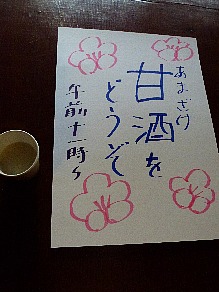 あまざけ
甘酒を
どうぞ
午前十一時〜